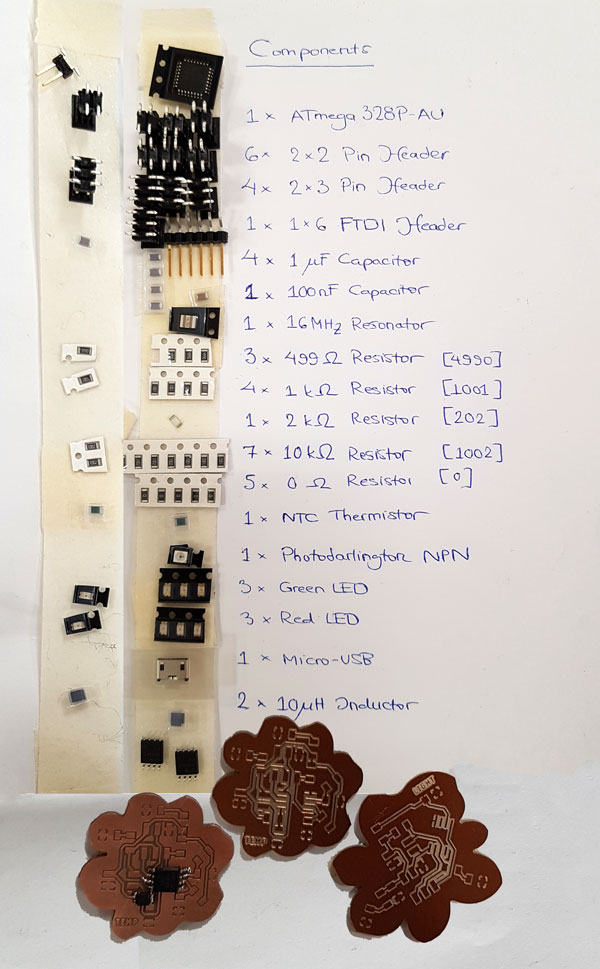 Components
1 × ATmega 328P-AU
6 × 2×2 Pin Header
4 × 2×3 Pin Header
1 × 1×6 FTDI Header
4 × 1 μF Capacitor
1 × 100nF Capacitor
1 × 16MHz Resonator
3 × 499 Ω Resistor [4990]
4 × 1 kΩ Resistor [1001]
1 × 2 kΩ Resistor [202]
7 × 10 kΩ Resistor [1002]
5 × 0 Ω Resistor [0]
1 × NTC Thermistor
1 × Photodarlington NPN
3 × Green LED
3 × Red LED
1 × Micro-USB
2 × 10μH Inductor
LIGHT
TEMP
TEMP